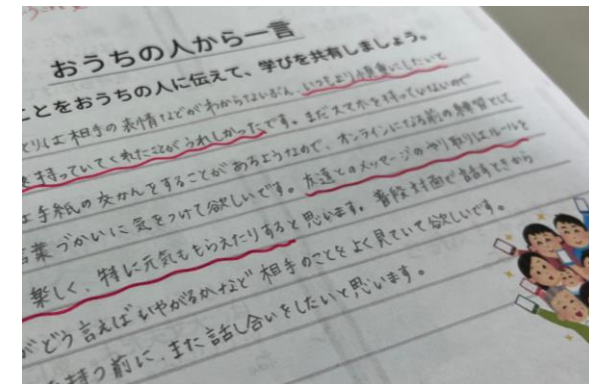 おうちの人から一言
ことをおうちの人に伝えて、学びを共有しましょう。
とりは相手の表情などがわからないぶん、いつもより慎重にしたいと
を持っていてくれたことがうれしかったです。まだスマホを持っていないので
手紙の交かんをすることがあるようなので、オンラインになる前の練習として
言葉づかいに気をつけて欲しいです。友達とのメッセージのやり取りはルールを
楽しく、特に元気をもらえたりすると思います。普段対面で話すときから
がどう言えばいやがるかなど相手のことをよく見ていて欲しいです。
持つ前に、また話し合いをしたいと思います。